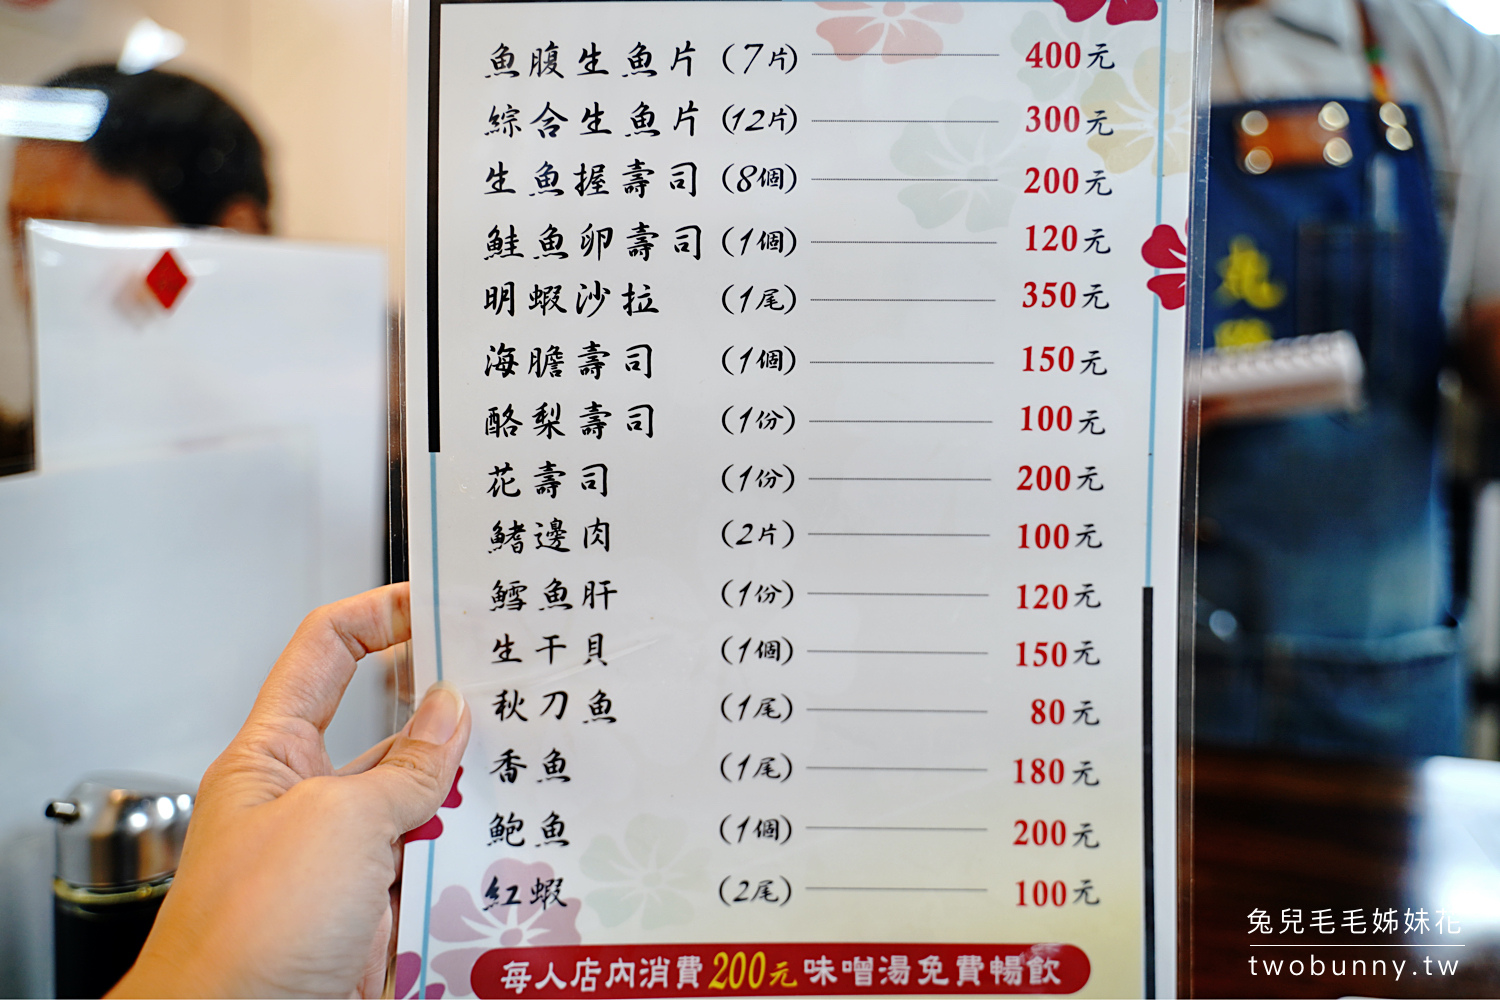 魚腹生魚片 (7片) 400元
綜合生魚片 (12片) 300元
生魚握壽司 (8個) 200元
鮭魚卵壽司 (1個) 120元
明蝦沙拉 (1尾) 350元
海膽壽司 (1個) 150元
酪梨壽司 (1份) 100元
花壽司 (1份) 200元
鰭邊肉 (2片) 100元
鱈魚肝 (1份) 120元
生干貝 (1個) 150元
秋刀魚 (1尾) 80元
香魚 (1尾) 180元
鮑魚 (1個) 200元
紅蝦 (2尾) 100元
每人店內消費200元味噌湯免費暢飲
兔兒毛毛姊妹花
twobunny.tw